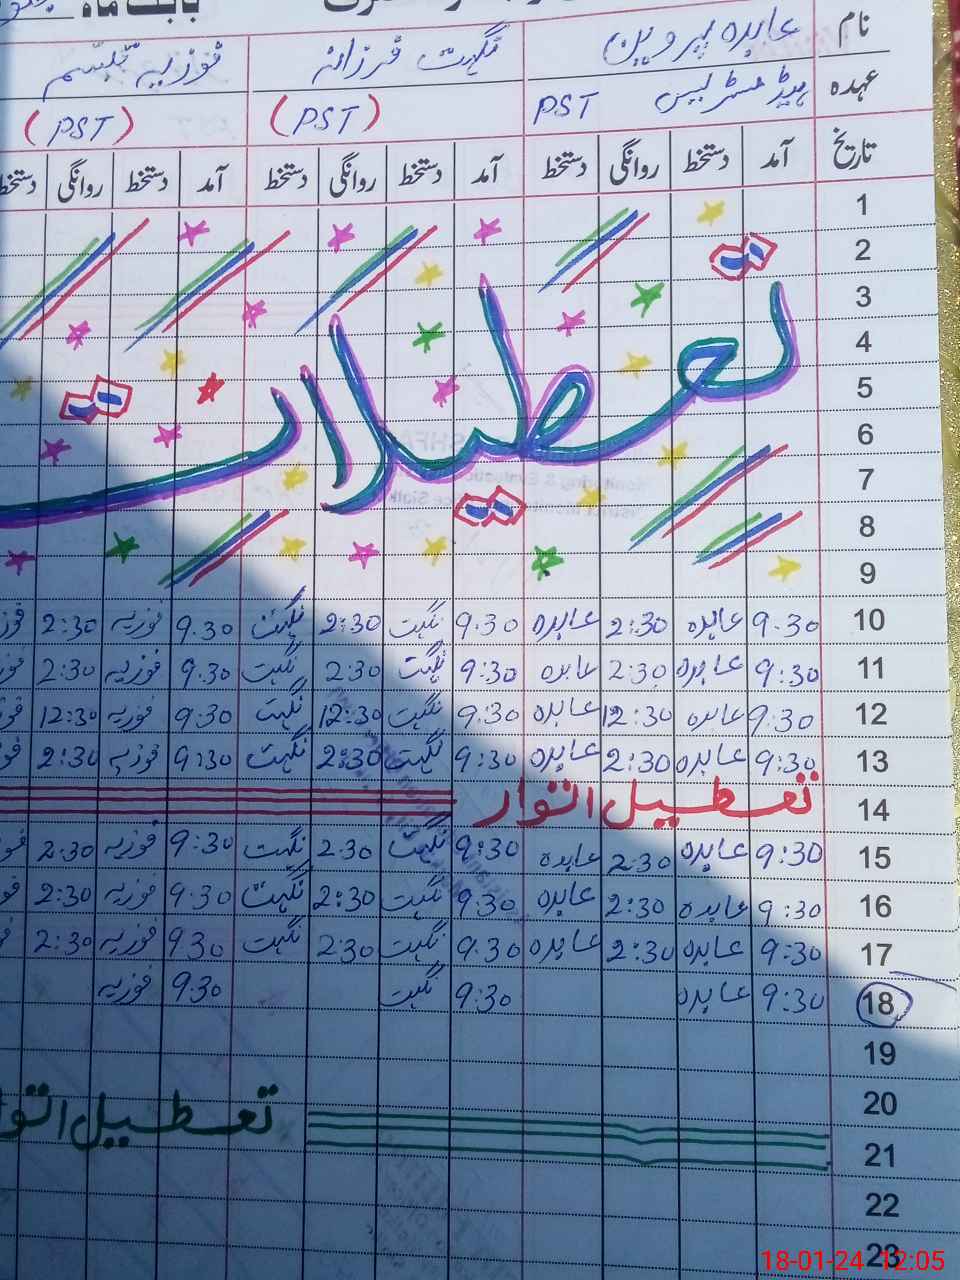 بابت ماہ
نام عابدہ پروین نگہت فرزانہ فوزیہ تبسم
عہدہ ہیڈ مسٹریس PST (PST) (PST)
تاریخ آمد دستخط روانگی دستخط آمد دستخط روانگی دستخط آمد دستخط روانگی دستخط
1
2
3
4
5
6
7
8
9
تعطیلات
10 9.30 عابدہ 2:30 عابدہ 9.30 نگہت 2:30 نگہت 9.30 فوزیہ 2:30
11 9:30 عابدہ 2:30 عابدہ 9:30 نگہت 2:30 نگہت 9.30 فوزیہ 2:30
12 9:30 عابدہ 12:30 عابدہ 9:30 نگہت 12:30 نگہت 9:30 فوزیہ 12:30
13 9:30 عابدہ 2:30 عابدہ 9:30 نگہت 2:30 نگہت 9:30 فوزیہ 2:30
14 تعطیل اتوار
15 9:30 عابدہ 2:30 عابدہ 9:30 نگہت 2:30 نگہت 9:30 فوزیہ 2:30
16 9:30 عابدہ 2:30 عابدہ 9:30 نگہت 2:30 نگہت 9:30 فوزیہ 2:30
17 9:30 عابدہ 2:30 عابدہ 9:30 نگہت 2:30 نگہت 930 فوزیہ 2:30
18 9:30 عابدہ 9:30 نگہت 9:30 فوزیہ
19
20
21 تعطیل
22
23
18-01-24 12:05